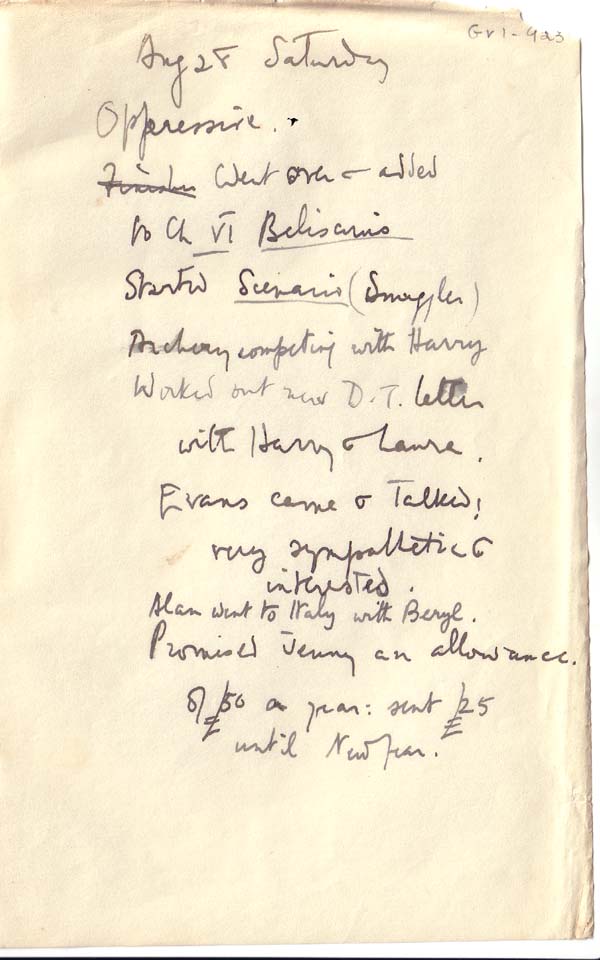 GvI-923
Aug 28 Saturday
Oppressive.
Finished Went over & added
to Ch VI Belisarius
Started Scenario (Smuggler)
Archery competing with Harry
Worked out new D.T. letter
with Harry & Laura.
Evans came & Talked;
very sympathetic &
interested.
Alan went to Italy with Beryl.
Promised Jenny an allowance.
of £50 a year: sent £25
until New Year.